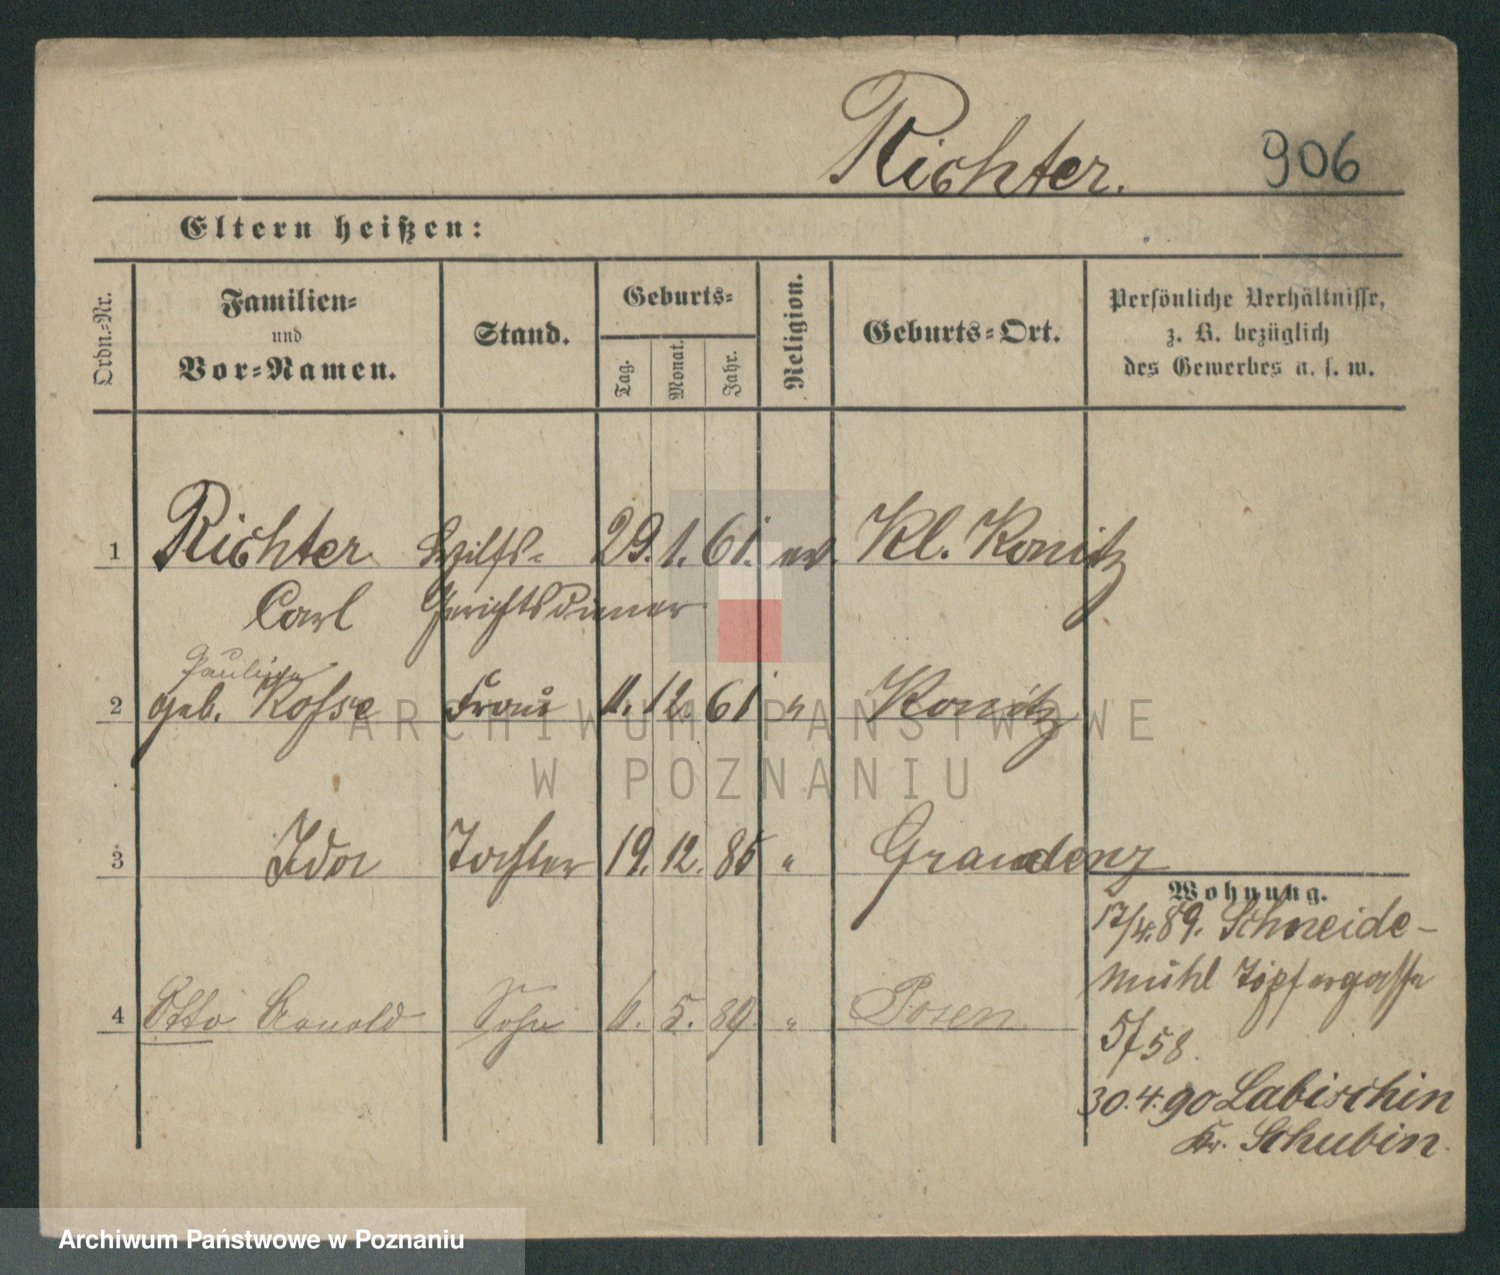 Richter. 906
Eltern heißen:
Ordn.-Nr.
Familien-
und
Vor-Namen.
Stand.
Geburts-
Tag.
Monat.
Jahr.
Religion.
Geburts-Ort.
Persönliche Verhältnisse,
z. B. bezüglich
des Gewerbes u. s. w.
1 Richter Hilfs- 29. 1. 61. ev. Kl. Konitz
Carl Gerichtsdiener
Pauline
2 geb. Frau 12. 61 " Konitz
ARCHIWUM PAŃSTWOWE
W POZNANIU
3 Ida Tochter 19. 12. 85 " Graudenz
Wohnung.
17/4.89. Schneide-
mühl Töpfergasse
4 Otto Arnold Sohn 5. 89. " Posen
58.
30.4.90 Labischin
Kr. Schubin.
Archiwum Państwowe w Poznaniu